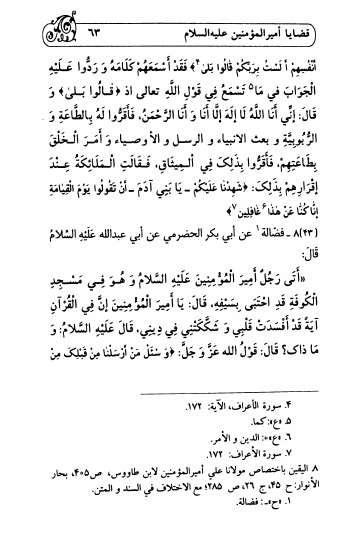 ٦٣ قضايا أميرالمؤمنين عليه‌السلام
أَنْفُسِهِمْ أَلَسْتُ بِرَبِّكُمْ قَالُوا بَلىٰ٤﴾ فَقَدْ أَسْمَعَهُمْ كَلَامَهُ وَ رَدُّوا عَلَيْهِ
الْجَوَابَ في مَا٥ تَسْمَعُ فِي قَوْلِ اللَّهِ تعالى اذ ﴿قَالُوا بَلىٰ﴾ وَ
قَالَ: إِنِّي أَنَا اللَّهُ لَا إِلَهَ إِلَّا أَنَا وَ أَنَا الرَّحْمَنُ، فَأَقَرُّوا لَهُ بِالطَّاعَةِ وَ
الرُّبُوبِيَّةِ و بعث الانبياء و الرسل و الأوصياء وَ أَمَرَ الْخَلْقَ
بِطَاعَتِهِمْ، فَأَقَرُّوا بِذَلِكَ فِي الْمِيثَاقِ، فَقَالَتِ الْمَلَائِكَةُ عِنْدَ
إِقْرَارِهِمْ بِذَلِكَ: ﴿شَهِدْنَا عَلَيْكُمْ ـ يَا بَنِي آدَمَ ـ أَنْ تَقُولُوا يَوْمَ الْقِيَامَةِ
إِنَّا كُنَّا عَنْ هٰذَا٦ غَافِلِينَ٧﴾
(٤٣)٨ ـ فضالة١ عن أبي بكر الحضرمي عن أبي عبدالله عَلَيْهِ السَّلَامُ
قَالَ:
«أَتَى رَجُلٌ أَمِيرَ الْمُؤْمِنِينَ عَلَيْهِ السَّلَامُ وَ هُوَ فِي مَسْجِدِ
الْكُوفَةِ قَدِ احْتَبَى بِسَيْفِهِ، قَالَ: يَا أَمِيرَ الْمُؤْمِنِينَ إِنَّ فِي الْقُرْآنِ
آيَةً قَدْ أَفْسَدَتْ قَلْبِي وَ شَكَّكَتْنِي فِي دِينِي، قَالَ عَلَيْهِ السَّلَامُ: وَ
مَا ذاك؟ قَالَ: قَوْلُ الله عَزَّ وَ جَلَّ: ﴿وَ سْئَلْ مَنْ أَرْسَلْنَا مِنْ قَبْلِكَ مِنْ
٤. سورة الأعراف، الآية: ١٧٢.
٥. «ع»: كما.
٦. «ع»: الدين و الأمر.
٧. سورة الأعراف: ١٧٢.
٨ اليقين باختصاص مولانا علي أميرالمؤمنين لابن طاووس، ص٤٠٥، بحار
الأنوار: ح ٤٥، ج ٢٦، ص ٢٨٥؛ مع الاختلاف في السند و المتن.
١. «ح»ـ: فضالة.